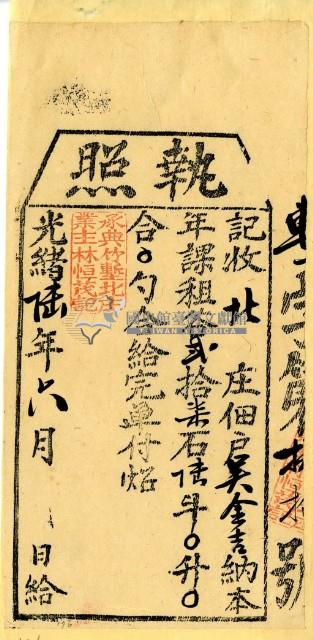 執照
記收北庄佃戶吳金吉納本
年課租谷貳拾柒石陸斗〇升〇
合〇勺 給完單付炤
承典竹塹北庄
業主林恒茂記
光緒陸年六月 日給
號
國立臺灣文學館